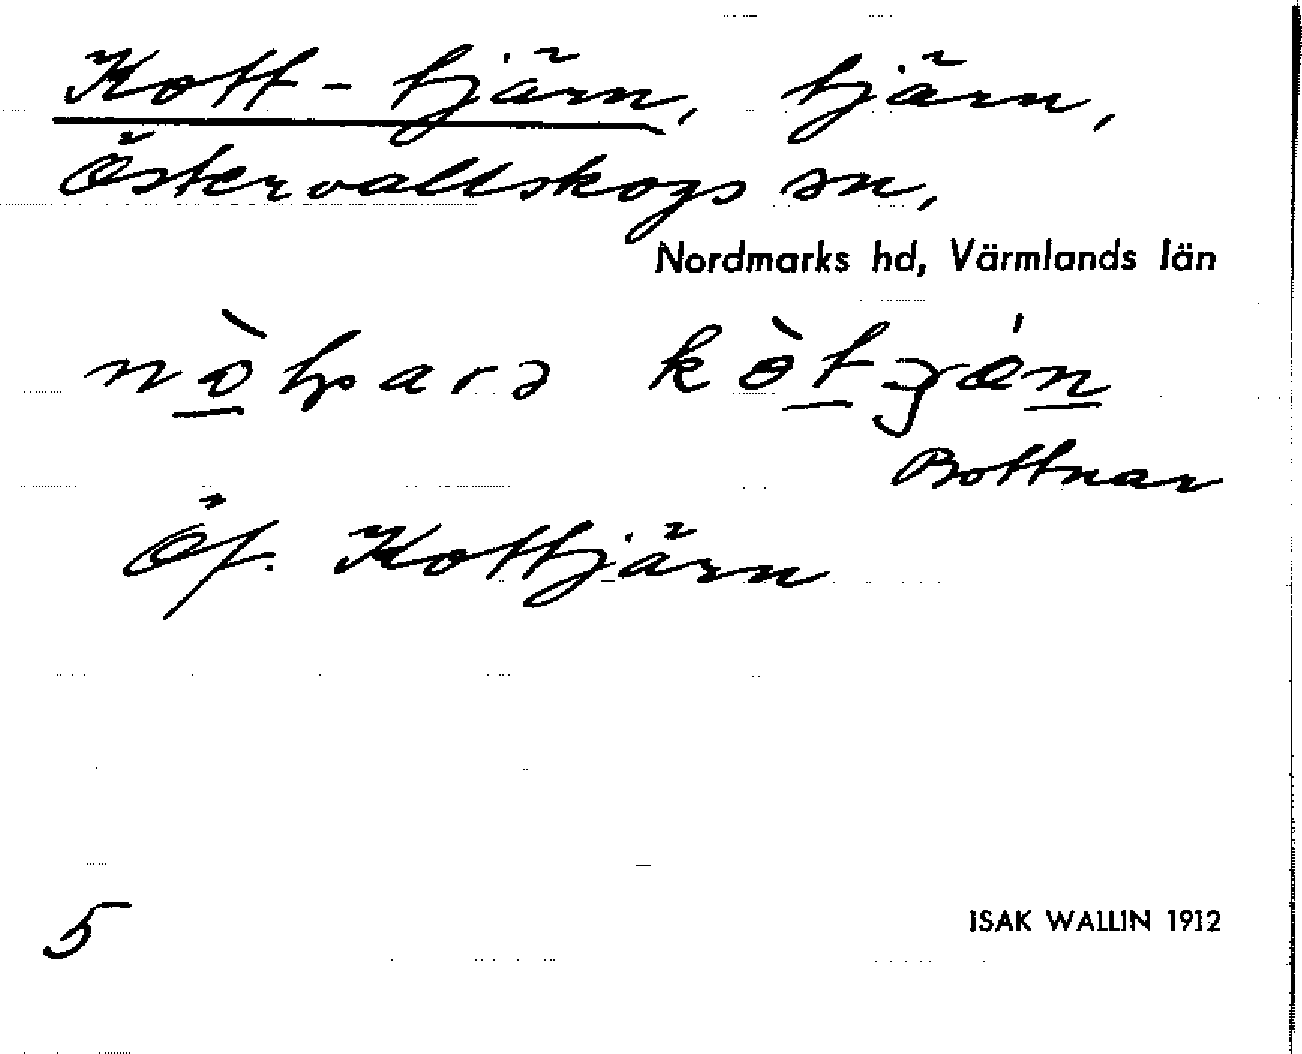 Kott-tjärn, tjärn,
Östervallskogs sn,
Nordmarks hd, Värmlands län
Bottnar
Öf. Kottjärn
5
ISAK WALLIN 1912